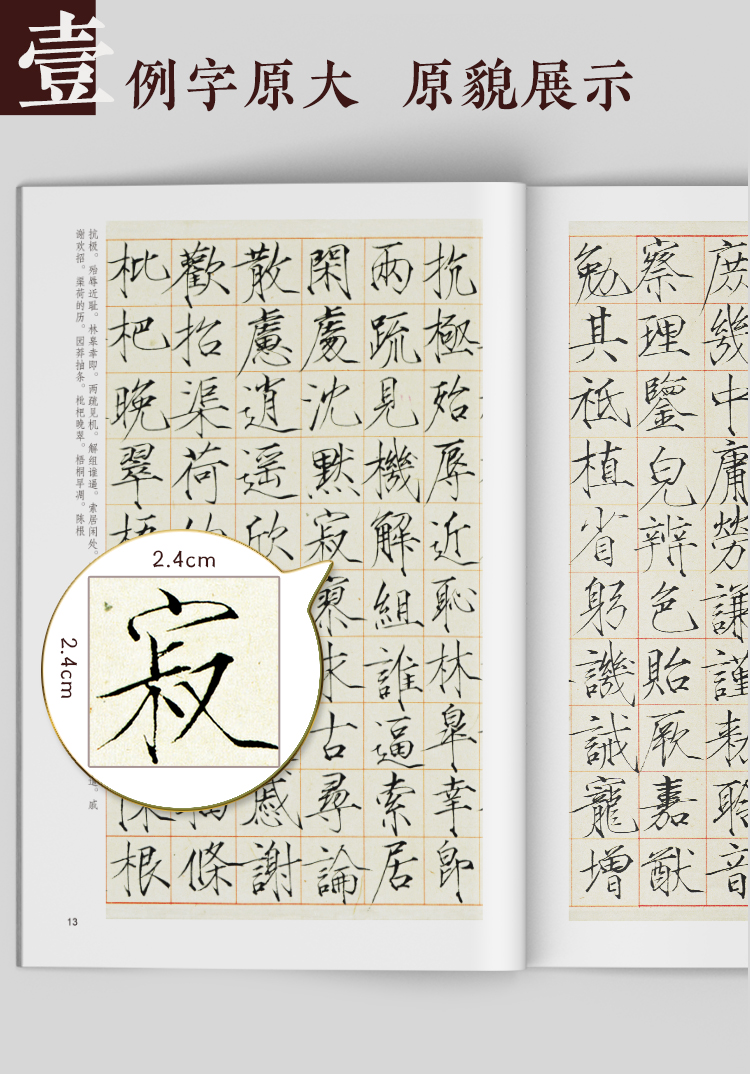 壹
例字原大 原貌展示
抗极。殆辱近耻。林皋幸即。两疏见机。解组谁逼。索居闲处。
遣。戚
谢欢招。渠荷的历。园莽抽条。枇杷晚翠。梧桐早凋。陈根
抗極殆辱近恥林皐幸即
兩疏見機解組誰逼索居
閑處沈默寂寥求古尋論
散慮逍遥欣
慼謝
歡招渠荷
條
枇杷晚翠
根
2.4cm
2.4cm
寂
13
庶幾中庸勞謙謹勑聆音
察理鑒皃辨色貽厥嘉猷
勉其祗植省躬譏誡寵增